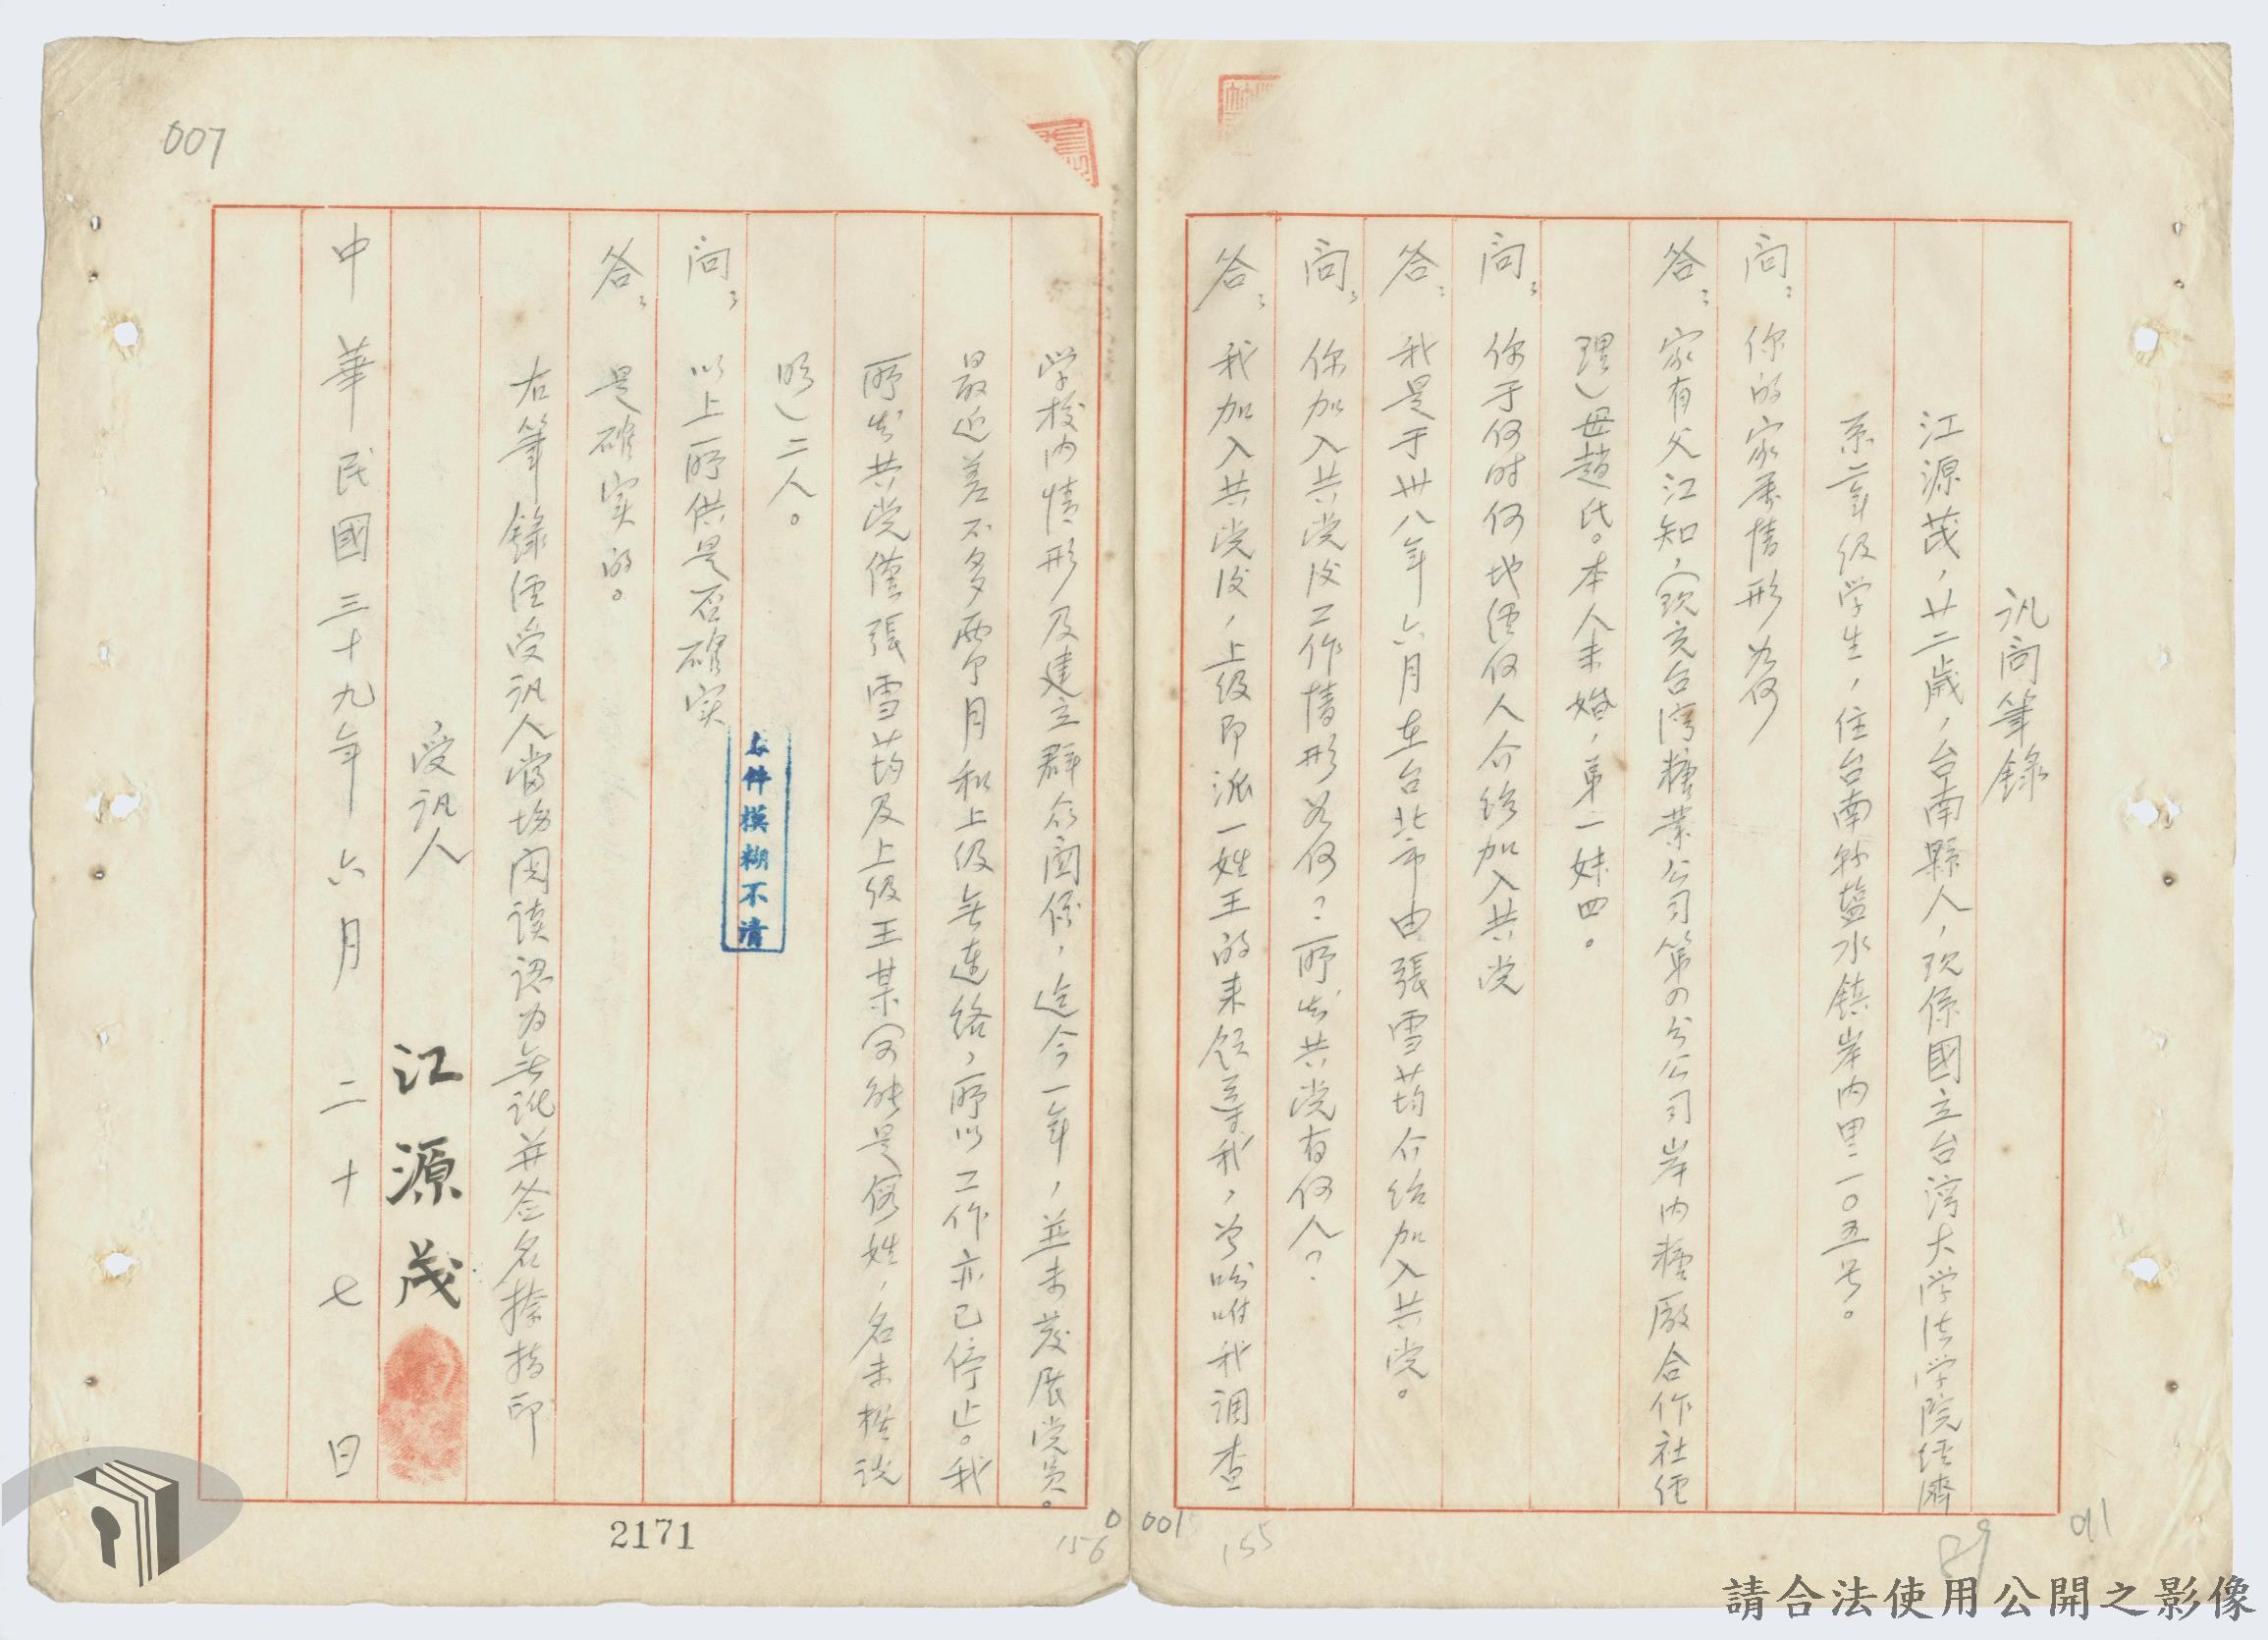 訊問筆錄
江源茂，廿二歲，台南縣人，現係國立台湾大学法学院經濟
系二年级学生，住台南縣鹽水鎮岸內里一〇五号。
问：你的家屬情形如何
答：家有父江知，(现充台湾糖業公司第四分公司岸內糖廠合作社經
理)母趙氏。本人未婚，弟一妹四。
问：你于何时何地經何人介紹加入共党
答：我是于卅八年六月在台北市由張雪芬介紹加入共党。
问：你加入共党后工作情形如何？所知共党有何人？
答：我加入共党后，上级即派一姓王的来領導我，曾吩咐我调查
学校内情形及建立群众関係，迄今一年，並未发展党员。
最近差不多兩个月和上级無連絡，所以工作亦已停止。我
所知共党僅張雪芬及上级王某(可能是假姓，名未據说
明)二人。
问：以上所供是否確实
答：是確实的。
右筆錄經受訊人當场阅读認为無訛并签名捺指印
受訊人 江源茂
中華民國三十九年六月二十七日
本件模糊不清
007
2171
156
0
001
155
請合法使用公開之影像